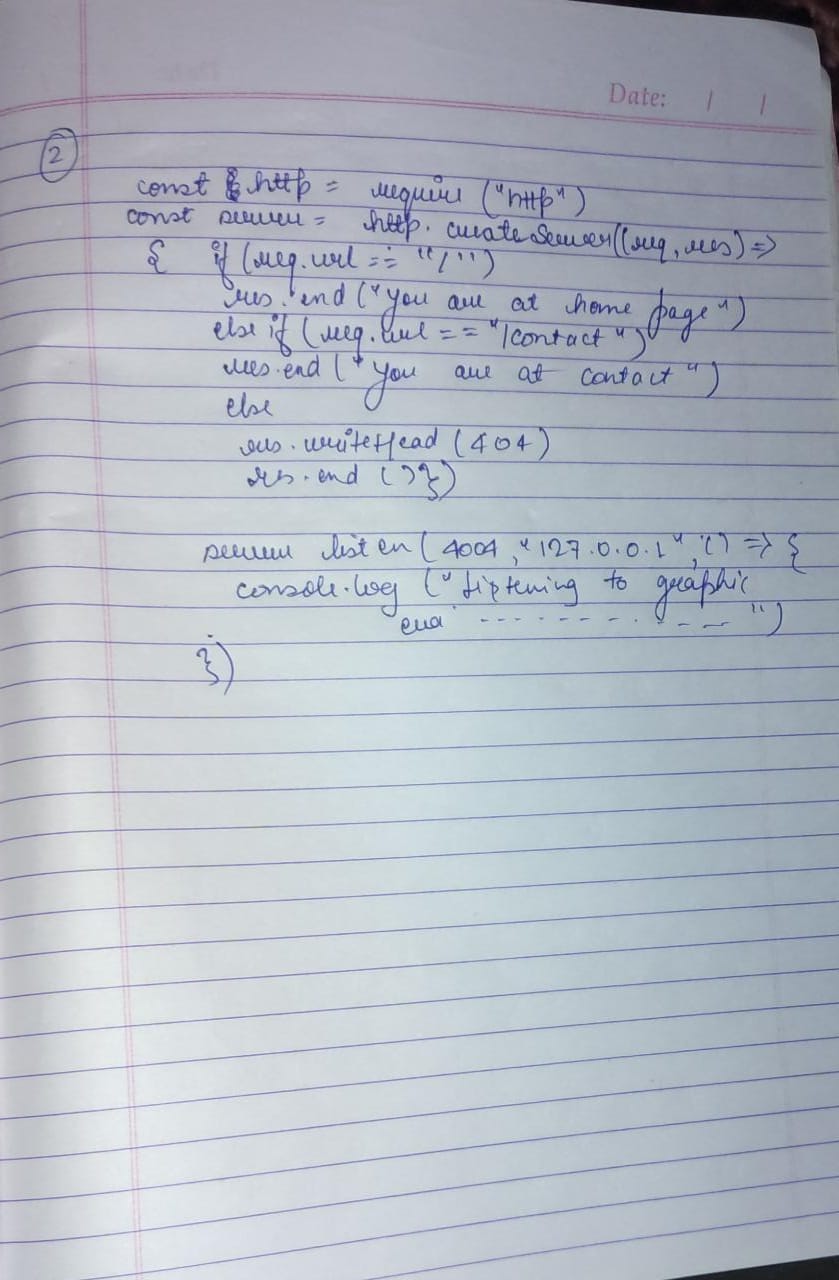 Date: / /
2
const http = require ("http")
const server = http. createServer((req, res) =>
{ if (req.url == "/")
res. end ("you are at home page")
else if (req.url == "/contact")
res.end ("you are at contact")
else
res. writeHead (404)
res. end ()})
server listen( 4004, "127.0.0.1", () => {
console.log ("listening to graphic
era - - - - - - - - - - - ")
})